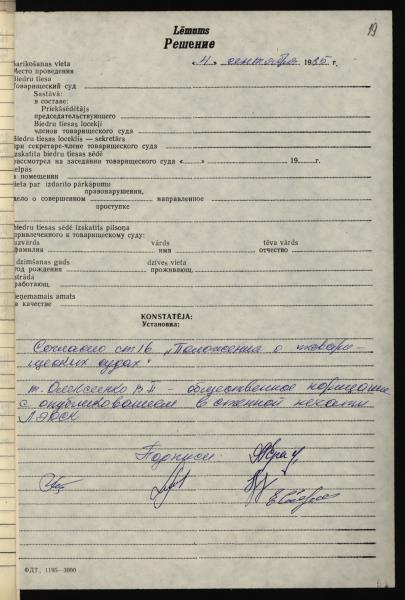 19
Lēmums
Решение
„4" сентября 1985 г.
Sarīkošanas vieta
Место проведения
Biedru tiesa
Товарищеский суд
Sastāvā:
в составе:
Priekšsēdētājs
председательствующего
Biedru tiesas locekļi
членов товарищеского суда
Biedru tiesas loceklis — sekretārs
при секретаре-члене товарищеского суда
izskatīta biedru tiesas sēdē
рассмотрел на заседании товарищеского суда «......» 19......г.
telpās
в помещении
lieta par izdarīto pārkāpumu
правонарушении,
дело о совершенном направленное
проступке
Biedru tiesas sēdē izskatīts pilsoņa
привлеченного к товарищескому суду:
uzvārds vārds tēva vārds
фамилия имя отчество
dzimšanas gads dzīves vieta
год рождения проживающ.
strādā
работающ.
ieņemamais amats
в качестве
KONSTATĒJA:
Установил:
Согласно ст 16 „Положения о товари-
щеских судах"
т. Олексеенко В П — общественное порицание
с опубликованием в стенной печати
Подписи
ФДТ., 1195—3000